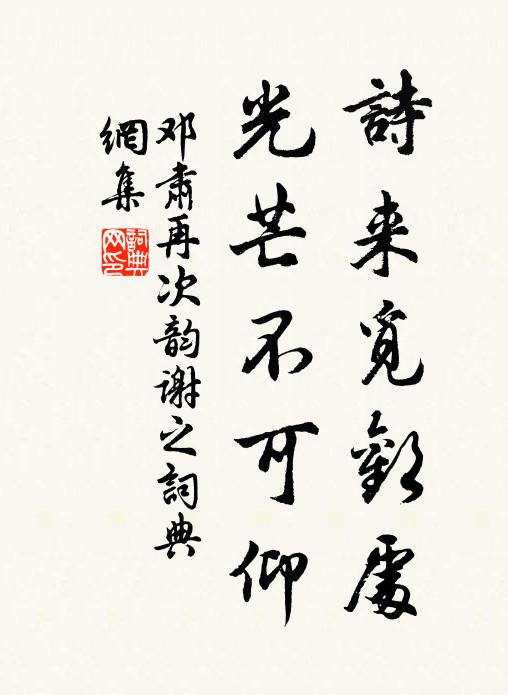 詩来覓歡處
光芒不可仰
邓肅再次韵谢之詞典
網集
詞典
网印